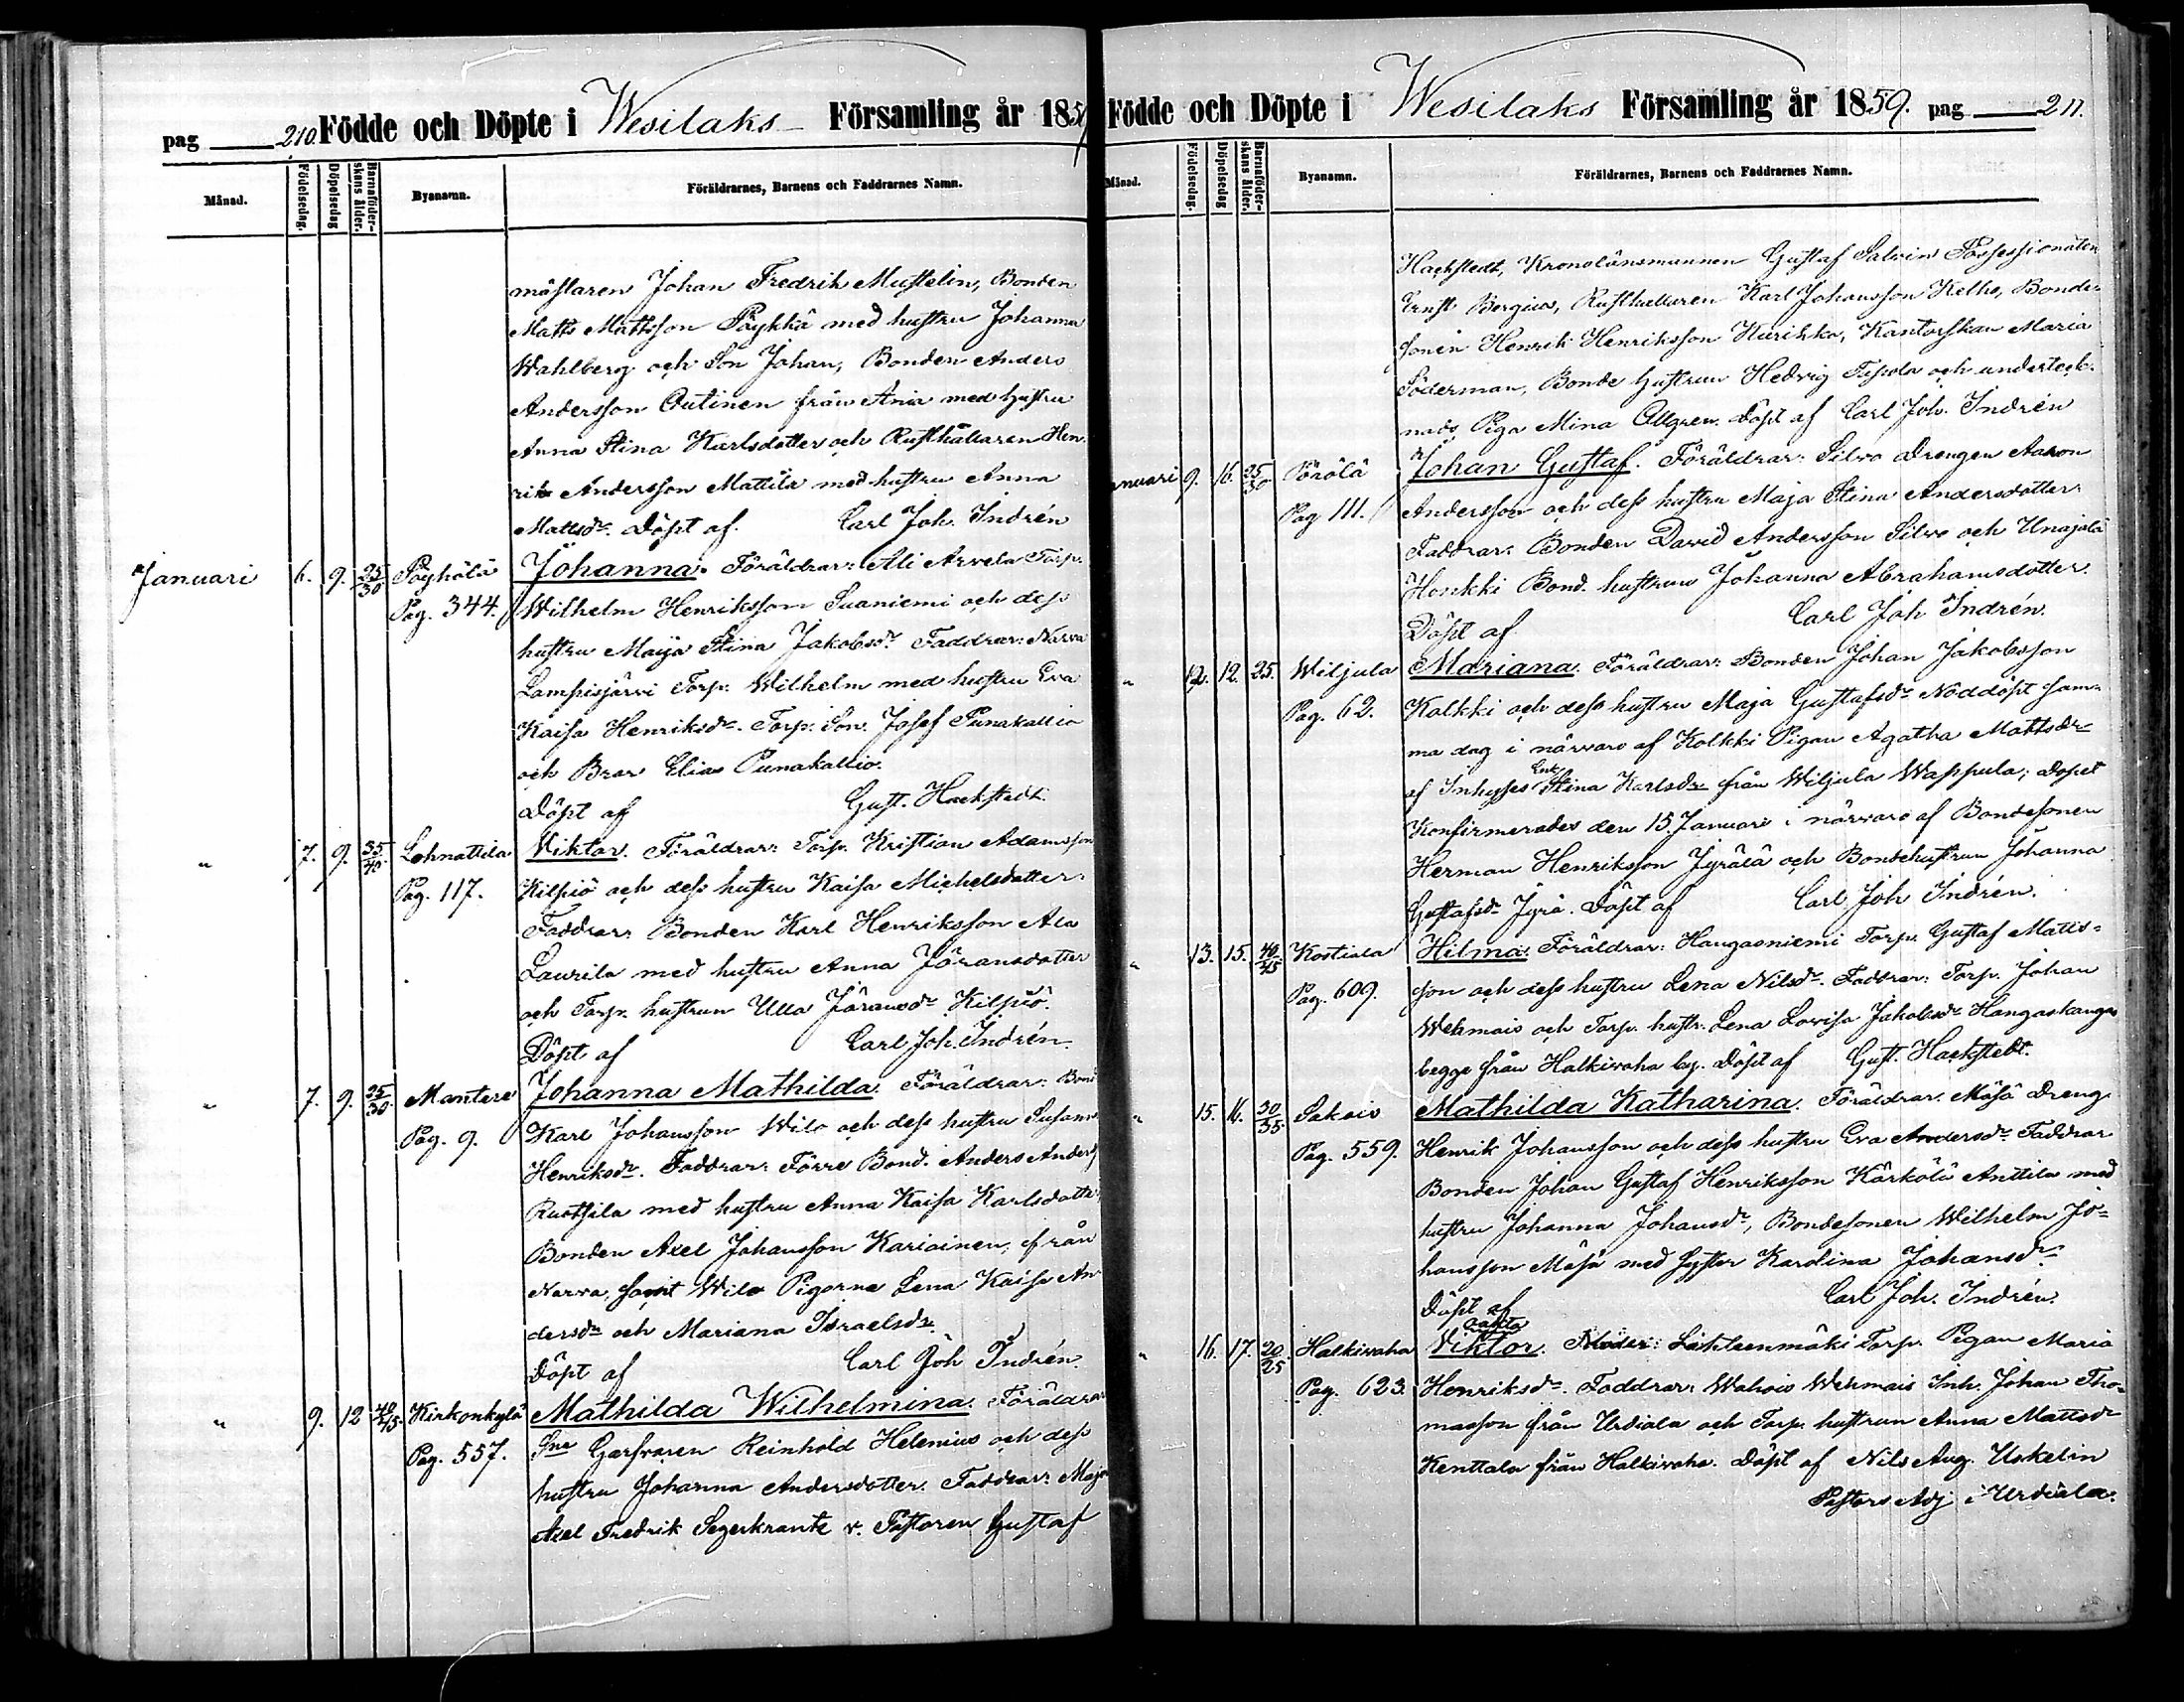 pag 210. Födde och Döpte i Wesilaks Församling år 1859
Månad. Födelsedag. Döpelsedag Barnaföderskans ålder. Byanamn. Föräldrarnes, Barnens och Faddrarnes Namn.
mästaren Johan Fredrik Mustelin, Bonden
Matts Mattsson Pöykkä med hustru Johanna
Wahlberg och Son Johan, Bonden Anders
Andersson Outinen från Ania med hustru
Anna Stina Karlsdotter och Rusthållaren Hen
rik Andersson Mattila med hustru Anna
Mattsdr. Döpt af. Carl Joh. Indrén
Januari 6. 9. 25/30 Pöyhölä Johanna. Föräldrar: Ali Arvela Torp.
Pag. 344. Wilhelm Henriksson Suaniemi och dess
hustru Maija Stina Jakobsdr. Faddrar: Narva
Lampisjärvi Torp. Wilhelm med hustru Eva
Kaisa Henriksdr. Torp. Son. Josef Punakallio
och Bror Elias Punakallio.
Döpt af Gust. Hackstedt.
" 7. 9. 35/40. Lohnattila Viktor. Föräldrar: Torp. Kristian Adamsson
Pag. 117. Kilpiö och dess hustru Kaisa Michelsdotter.
Faddrar: Bonden Karl Henriksson Ala
Laurila med hustru Anna Jöransdotter
och Torp. hustrun Ulla Göransdr Kilpiö.
Döpt af Carl Joh. Indrén.
" 7. 9. 25/30. Mantere Johanna Mathilda. Föräldrar: Bond
Pag. 9. Karl Johansson Wilo och dess hustru Susanna
Henriksdr. Faddrar: Förre Bond. Anders Anders
Ruotsila med hustru Anna Kaisa Karlsdotter
Bonden Axel Johansson Kariainen, från
Narva, samt Wilo Pigorna Lena Kaisa An
dersdr och Mariana Israelsdr.
Döpt af Carl Joh Indrén.
" 9. 12 40/45. Kirkonkylä Mathilda Wilhelmina. Föräldrar
Pag. 557. Sne Garfvaren Reinhold Helenius och dess
hustru Johanna Andersdotter. Faddrar: Major
Axel Fredrik Segerkrantz v. Pastoren Gustaf
Födde och Döpte i Wesilaks Församling år 1859. pag 211.
Månad. Födelsedag. Döpelsedag Barnaföderskans ålder. Byanamn. Föräldrarnes, Barnens och Faddrarnes Namn.
Hackstedt, Kronolänsmannen Gustaf Salvin Possessionaten
Ernst Bergius, Rusthållaren Karl Johansson Kelho, Bonde-
sonen Henrik Henriksson Kurikka, Kantorskan Maria
Söderman, Bonde hustrun Hedvig Tupola och underteck-
nads Piga Mina Allgren. Döpt af Carl Joh. Indrén
anuari 9. 16. 25/30 Pörölä Johan Gustaf. Föräldrar: Silvo Drengen Aaron
Pag 111. Andersson och dess hustru Maja Stina Andersdotter.
Faddrar: Bonden David Andersson Silvo och Unajala
Honkki Bond. hustrun Johanna Abrahamsdotter.
Döpt af Carl Joh Indrén.
" 12. 12. 25. Wiljula Mariana. Föräldrar: Bonden Johan Jakobsson
Pag. 62. Kalkki och dess hustru Maja Gustafsdr. Nöddöpt sam-
ma dag i närvaro af Kolkki Pigan Agatha Mattsdr
af Inhyses Enk. Stina Karlsdr från Wiljula Wappula; dopet
Konfirmerades den 15. Januari i närvaro af Bondesonen
Herman Henriksson Jyrälä och Bondehustrun Johanna
Gustafsdr Jyrä. Döpt af Carl Joh Indrén.
" 13. 15. 40/45 Kostiala Hilma. Föräldrar: Hangasniemi Torp. Gustaf Matts-
Pag. 609. son och dess hustru Lena Nilsdr. Faddrar: Torp. Johan
Wehmais och Torp. hustr. Lena Lovisa Jakobsdr Hangaskangas
begge från Halkivaha by. Döpt af Gust. Hackstedt.
" 15. 16. 30/35 Sakois Mathilda Katharina. Föräldrar. Mäsä Dreng
Pag. 559. Henrik Johansson och dess hustru Eva Andersdr. Faddrar
Bonden Johan Gustaf Henriksson Kärkölä Anttila med
hustru Johanna Johansdr, Bondesonen Wilhelm Jo-
hansson Mäsä med syster Karolina Johansdr.
Döpt af Carl Joh. Indrén.
" 16. 17. 20/25 Halkivaha oäkta Viktor. Moder: Lähteenmäki Torp. Pigan Maria
Pag. 623. Henriksdr. Faddrar: Wahois Wehmais Inh. Johan Tho-
masson från Urdiala och Torp. hustrun Anna Mattsdr
Kenttala från Halkivaha. Döpt af Nils Aug. Uskelin
Pastors Adj i Urdiala.